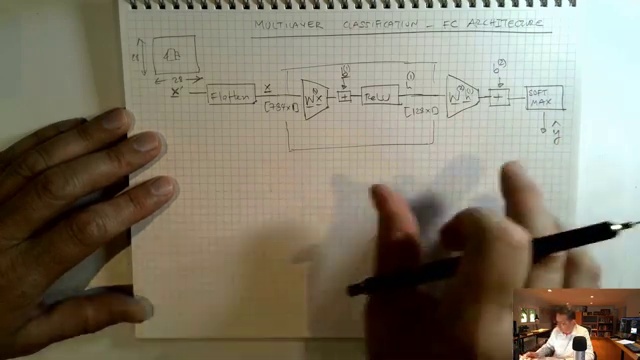 MULTILAYER CLASSIFICATION - FC ARCHITECTURE
28
28
x'
Flatten
x
[784x1]
W(1) x
b(1)
+
ReLU
h(1)
[128x1]
W(2) h(1)
b(2)
+
SOFT
MAX
ŷ